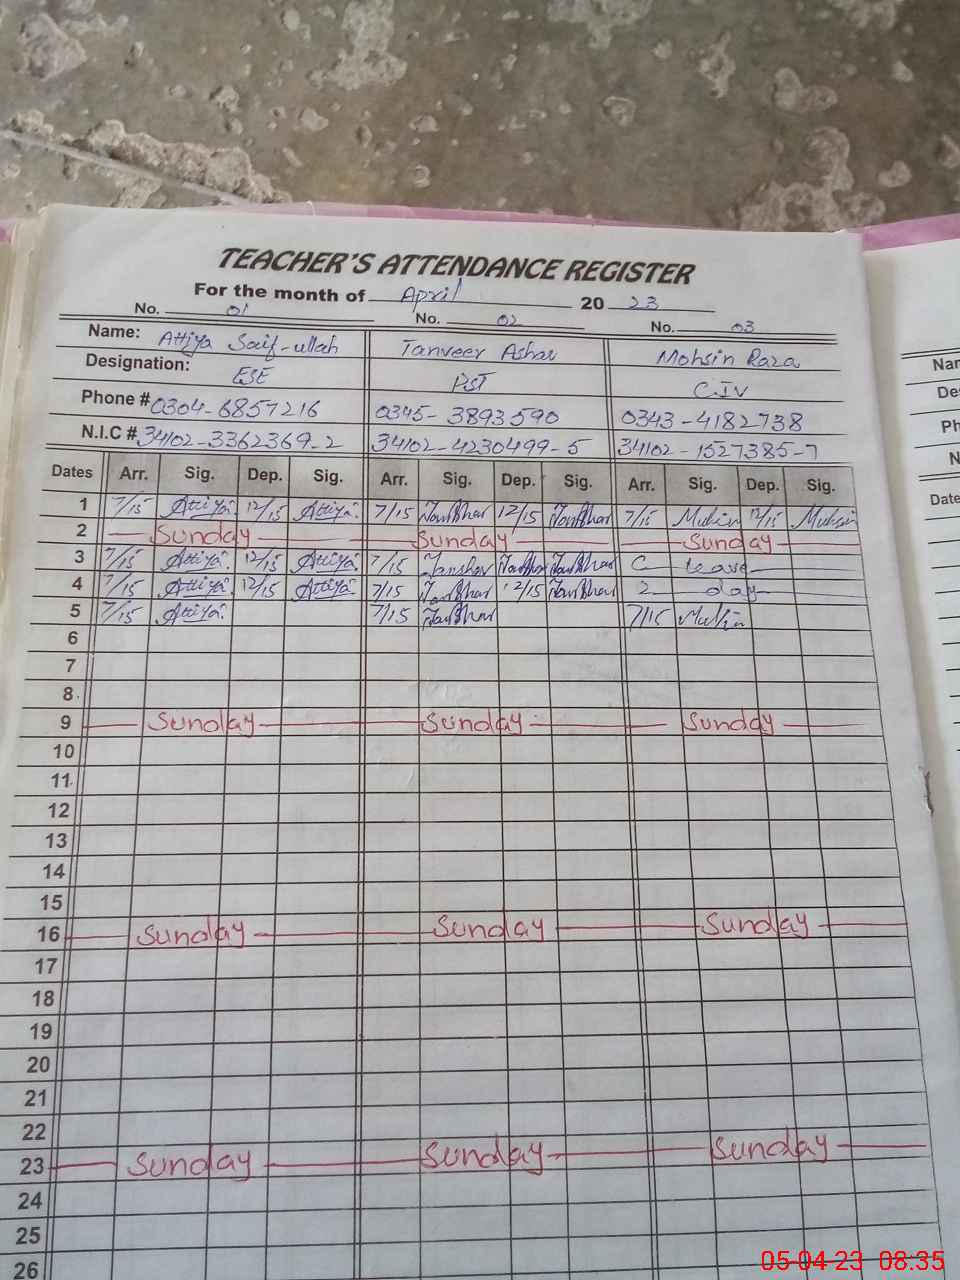 TEACHER'S ATTENDANCE REGISTER
For the month of April 2023
No. 01 No. 02 No. 03
Name: Attiya Saif-ullah Tanveer Ashar Mohsin Raza
Designation: ESE PST C.IV
Phone # 0304-6857216 0345-3893590 0343-4182738
N.I.C # 34102-3362369-2 34102-4230499-5 34102-1527385-7
Dates Arr. Sig. Dep. Sig. Arr. Sig. Dep. Sig. Arr. Sig. Dep. Sig.
1 7/15 Attiya 12/15 Attiya 7/15 12/15 7/15 Muhsin 12/15 Muhsin
2 Sunday Sunday Sunday
3 7/15 Attiya 12/15 Attiya 7/15 C leave
4 7/15 Attiya 12/15 Attiya 7/15 12/15 2 day
5 7/15 Attiya 7/15 7/15
6
7
8
9 Sunday Sunday Sunday
10
11
12
13
14
15
16 Sunday Sunday Sunday
17
18
19
20
21
22
23 Sunday Sunday Sunday
24
25
26
Nam
De
Ph
N
Date
05-04-23 08:35